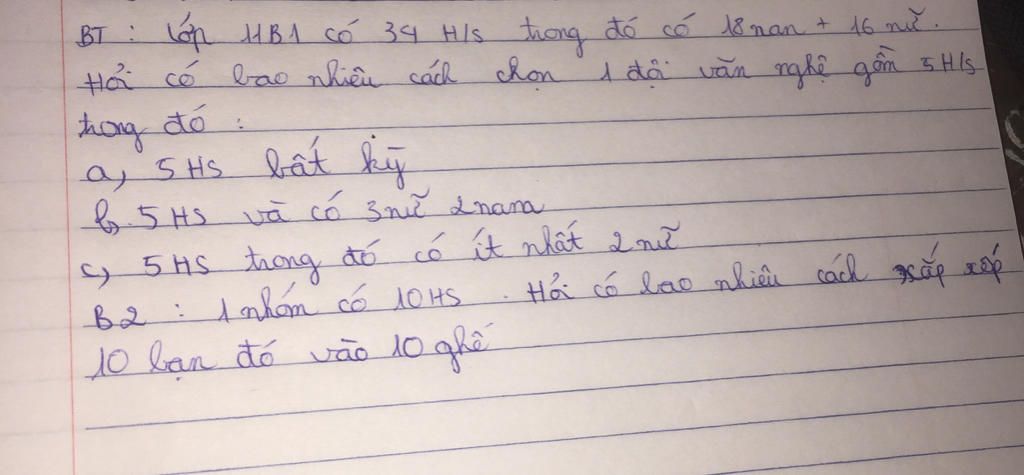 BT : Lớp 11B1 có 34 H/s trong đó có 18 nan + 16 nữ.
Hỏi có bao nhiêu cách chọn 1 đội văn nghệ gồm 5 H/s
trong đó :
a, 5 HS bất kỳ
b. 5 HS và có 3 nữ 2 nam
c, 5 HS trong đó có ít nhất 2 nữ
B2 : 1 nhóm có 10 HS. Hỏi có bao nhiêu cách sắp xếp
10 bạn đó vào 10 ghế